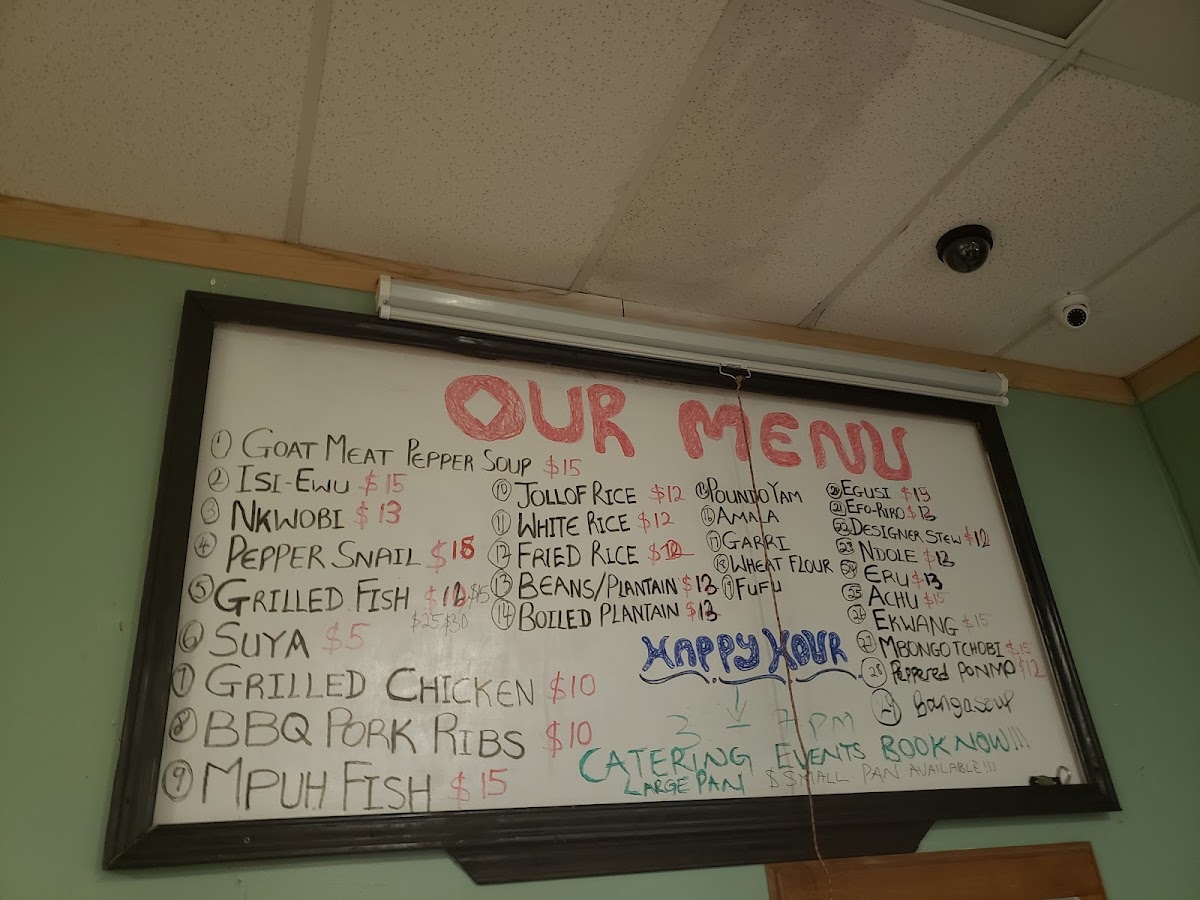 OUR MENU
① GOAT MEAT PEPPER SOUP $15
② ISI-EWU $15
③ NKWOBI $13
④ PEPPER SNAIL $15
⑤ GRILLED FISH $15
$25 $30
⑥ SUYA $5
⑦ GRILLED CHICKEN $10
⑧ BBQ PORK RIBS $10
⑨ MPUH FISH $15
⑩ JOLLOF RICE $12
⑪ WHITE RICE $12
⑫ FRIED RICE $12
⑬ BEANS/PLANTAIN $13
⑭ BOILED PLANTAIN $13
⑮ POUNDO YAM
⑯ AMALA
⑰ GARRI
⑱ WHEAT FLOUR
⑲ FUFU
⑳ EGUSI $15
㉑ EFO-RIRO $13
㉒ DESIGNER STEW $12
㉓ NDOLE $13
㉔ ERU $13
㉕ ACHU $15
㉖ EKWANG $15
㉗ MBONGO TCHOBI $15
㉘ Peppered PONMO $12
㉙ Banga soup
HAPPY HOUR
3 - 7 PM
CATERING EVENTS BOOK NOW!!!
LARGE PAN & SMALL PAN AVAILABLE!!!